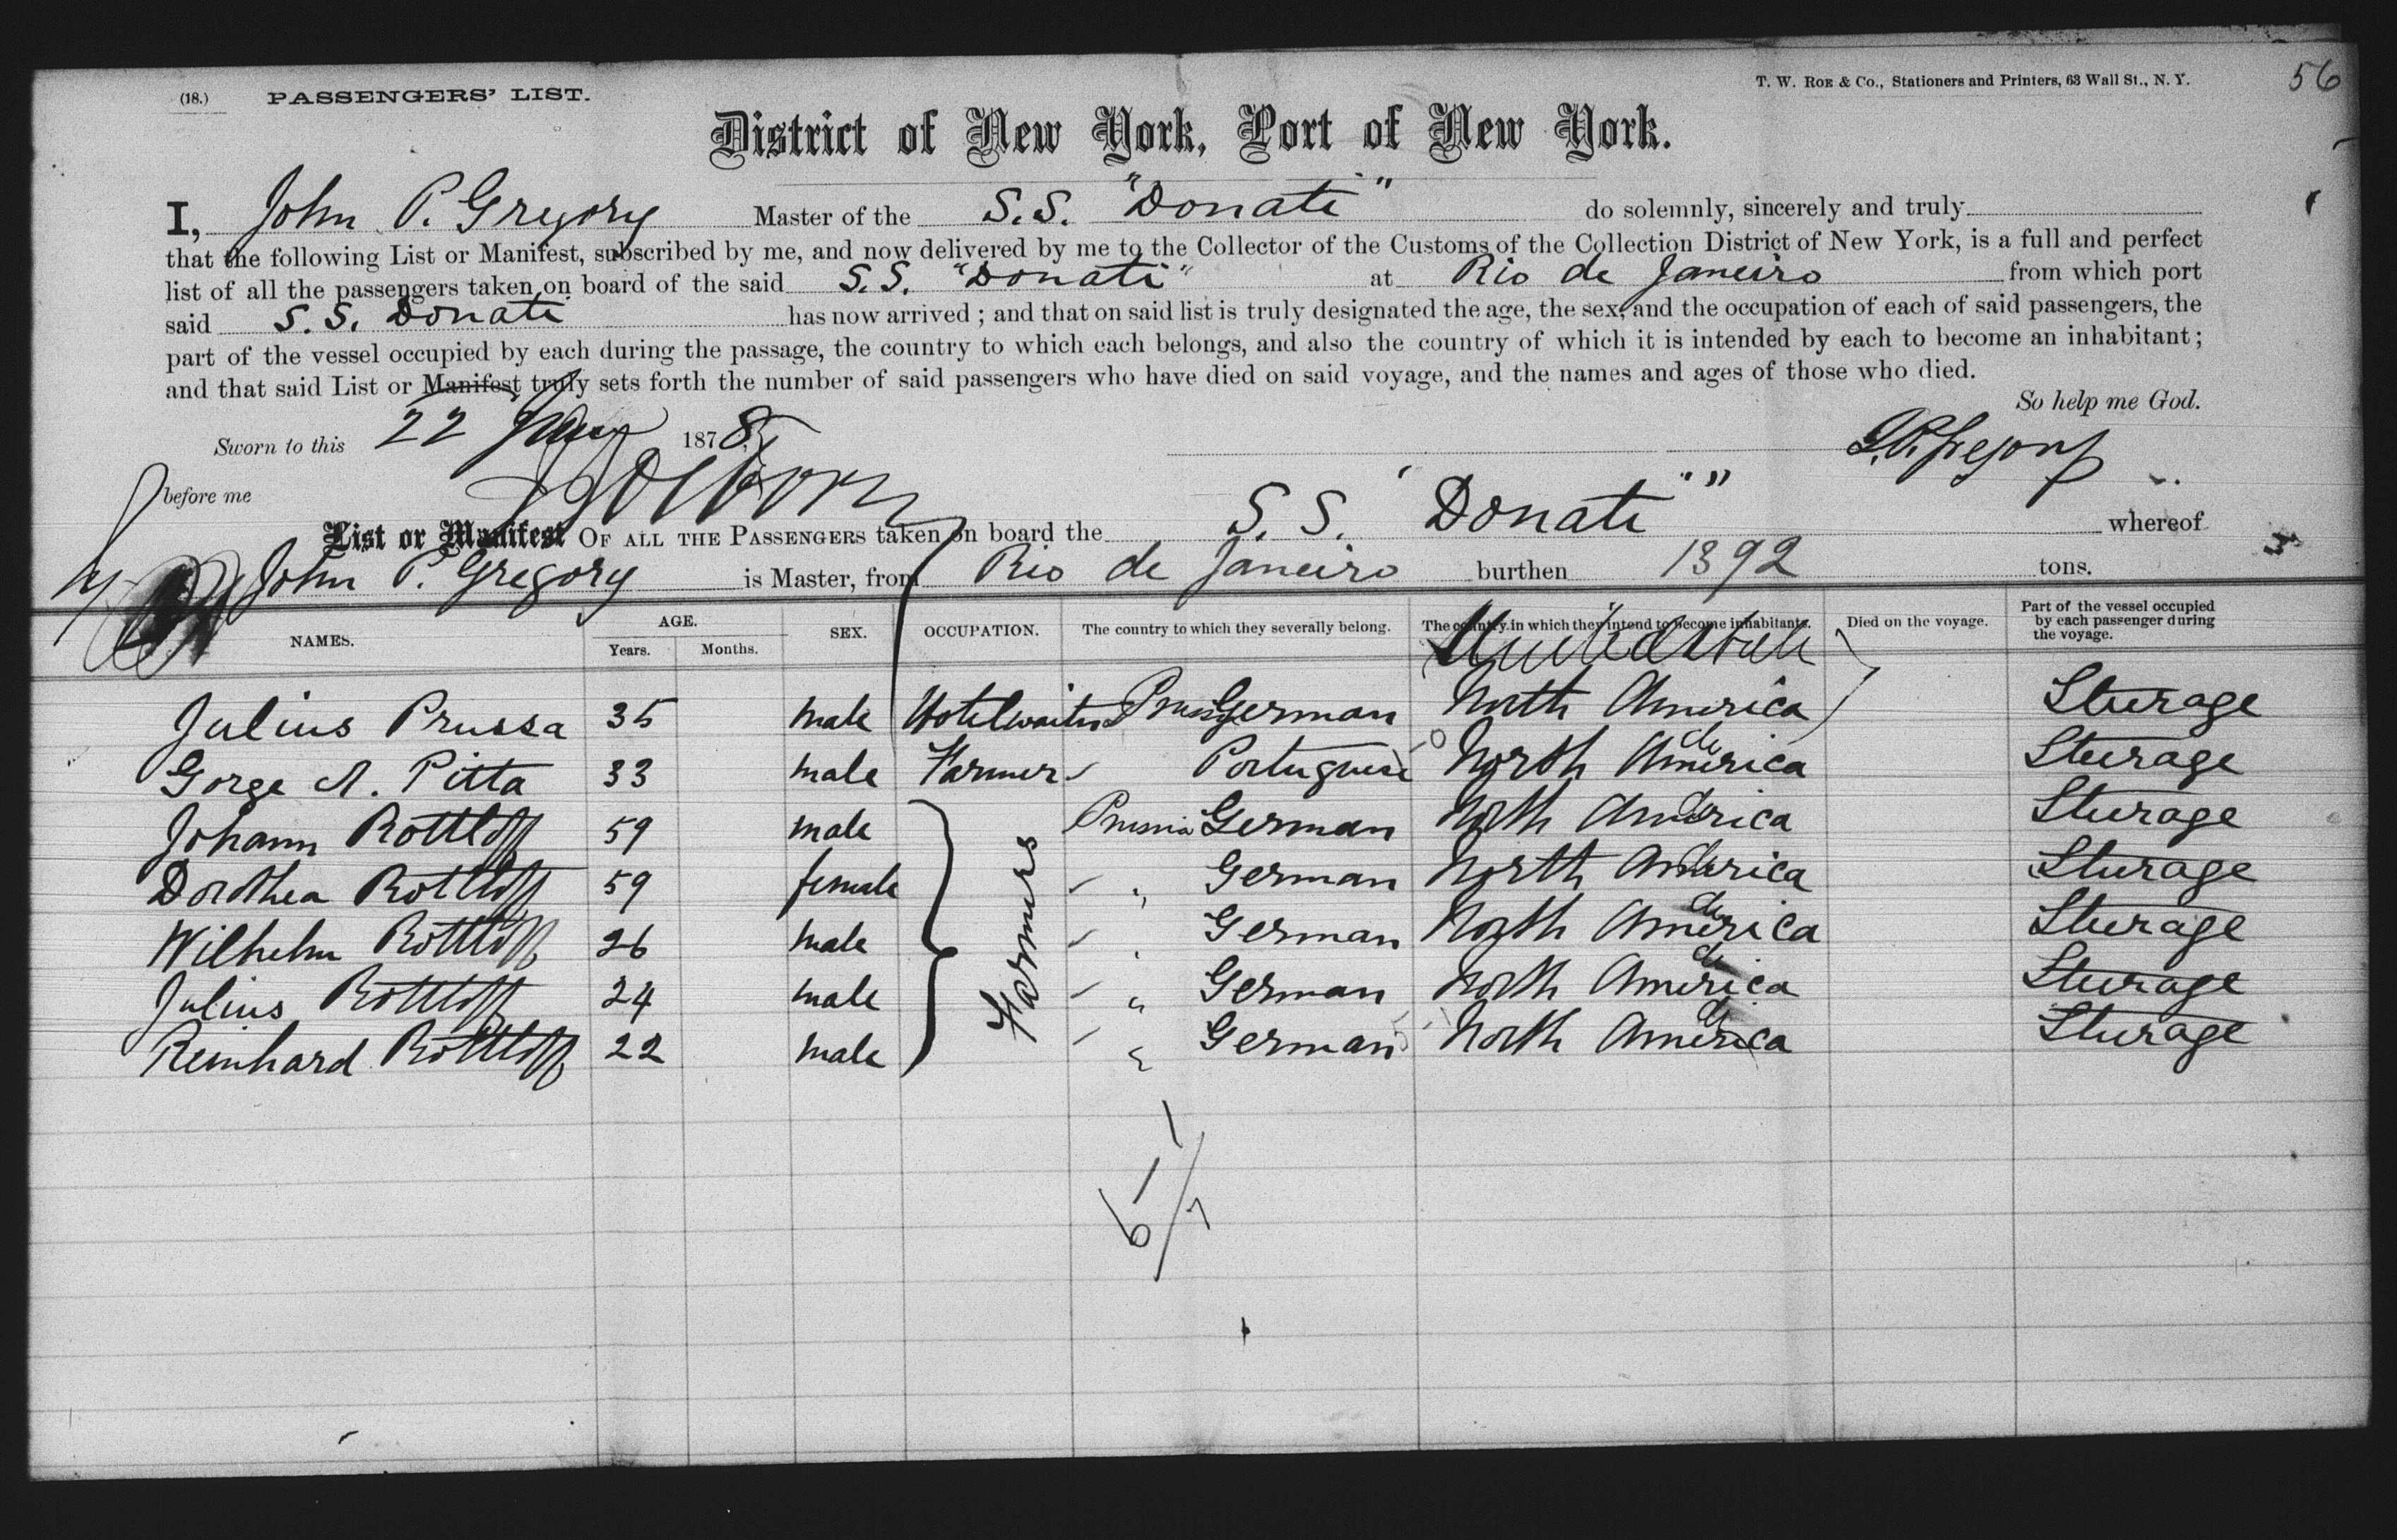 (18.) PASSENGERS' LIST.
T. W. ROE & CO., Stationers and Printers, 63 Wall St., N. Y.
56
District of New York, Port of New York.
I, John P. Gregory Master of the S.S. "Donati" do solemnly, sincerely and truly
that the following List or Manifest, subscribed by me, and now delivered by me to the Collector of the Customs of the Collection District of New York, is a full and perfect
list of all the passengers taken on board of the said S.S. "Donati" at Rio de Janeiro from which port
said S. S. Donati has now arrived; and that on said list is truly designated the age, the sex, and the occupation of each of said passengers, the
part of the vessel occupied by each during the passage, the country to which each belongs, and also the country of which it is intended by each to become an inhabitant;
and that said List or Manifest truly sets forth the number of said passengers who have died on said voyage, and the names and ages of those who died.
So help me God.
Sworn to this 22 Jany 1878 J.P. Gregory
before me
List or Manifest OF ALL THE PASSENGERS taken on board the S. S. "Donati" whereof
John P. Gregory is Master, from Rio de Janeiro burthen 1392 tons.
NAMES. AGE. Years. Months. SEX. OCCUPATION. The country to which they severally belong. The country in which they intend to become inhabitants. Died on the voyage. Part of the vessel occupied by each passenger during the voyage.
United States
Julius Prussa 35 male Hotelwaiter Prussia German North America Sturage
Gorge A. Pitta 33 male Farmer Portuguese North America do Sturage
Johann Rottloff 59 male Prussia German North America do Sturage
Dorothea Rottloff 59 female " German North America do Sturage
Wilhelm Rottloff 26 male " German North America do Sturage
Julius Rottloff 24 male " German North America do Sturage
Reinhard Rottloff 22 male " German North America do Sturage
Farmers
1
6 – / 7